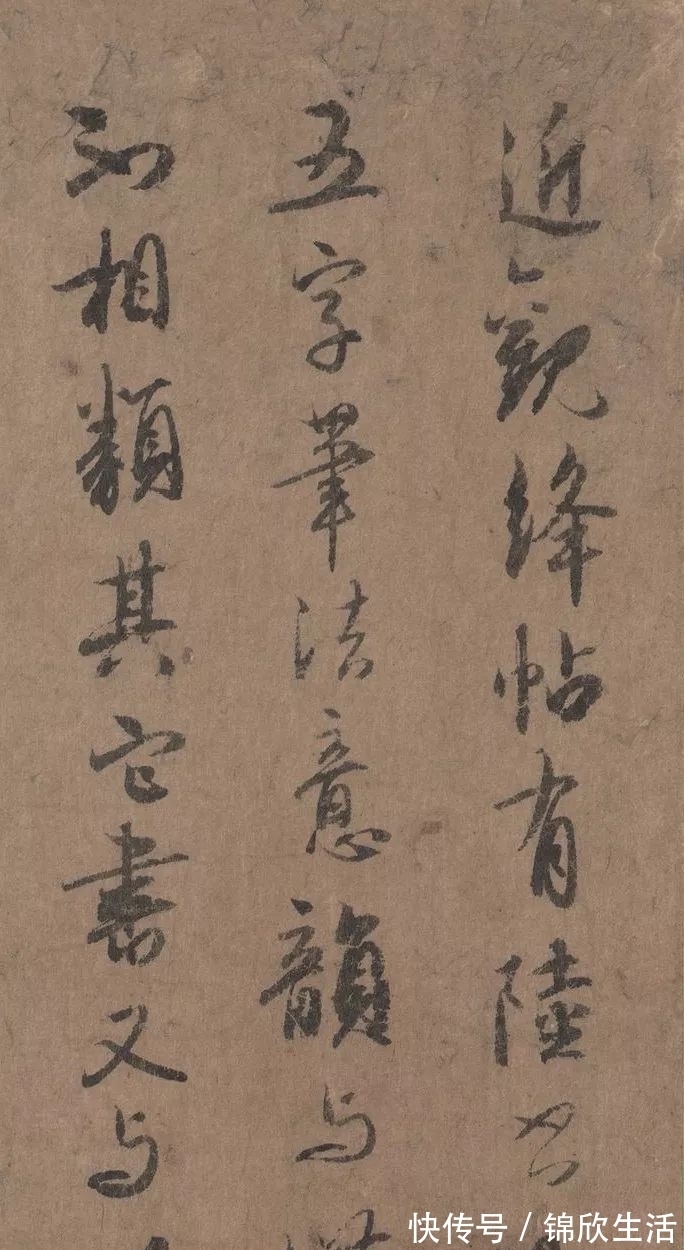 近觀絳帖有陸
五字筆法意韻与
不相類其它書又与
快传号／锦欣生活